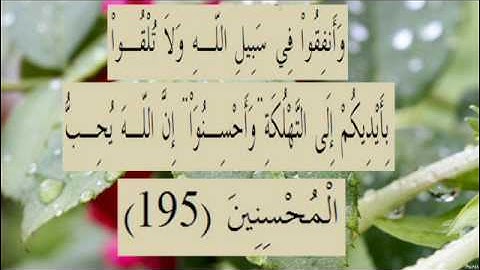 وَأَنفِقُواْ فِي سَبِيلِ اللّهِ وَلاَ تُلْقُواْ
بِأَيْدِيكُمْ إِلَى التَّهْلُكَةِ وَأَحْسِنُوَاْ إِنَّ اللّهَ يُحِبُّ
الْمُحْسِنِينَ (195)